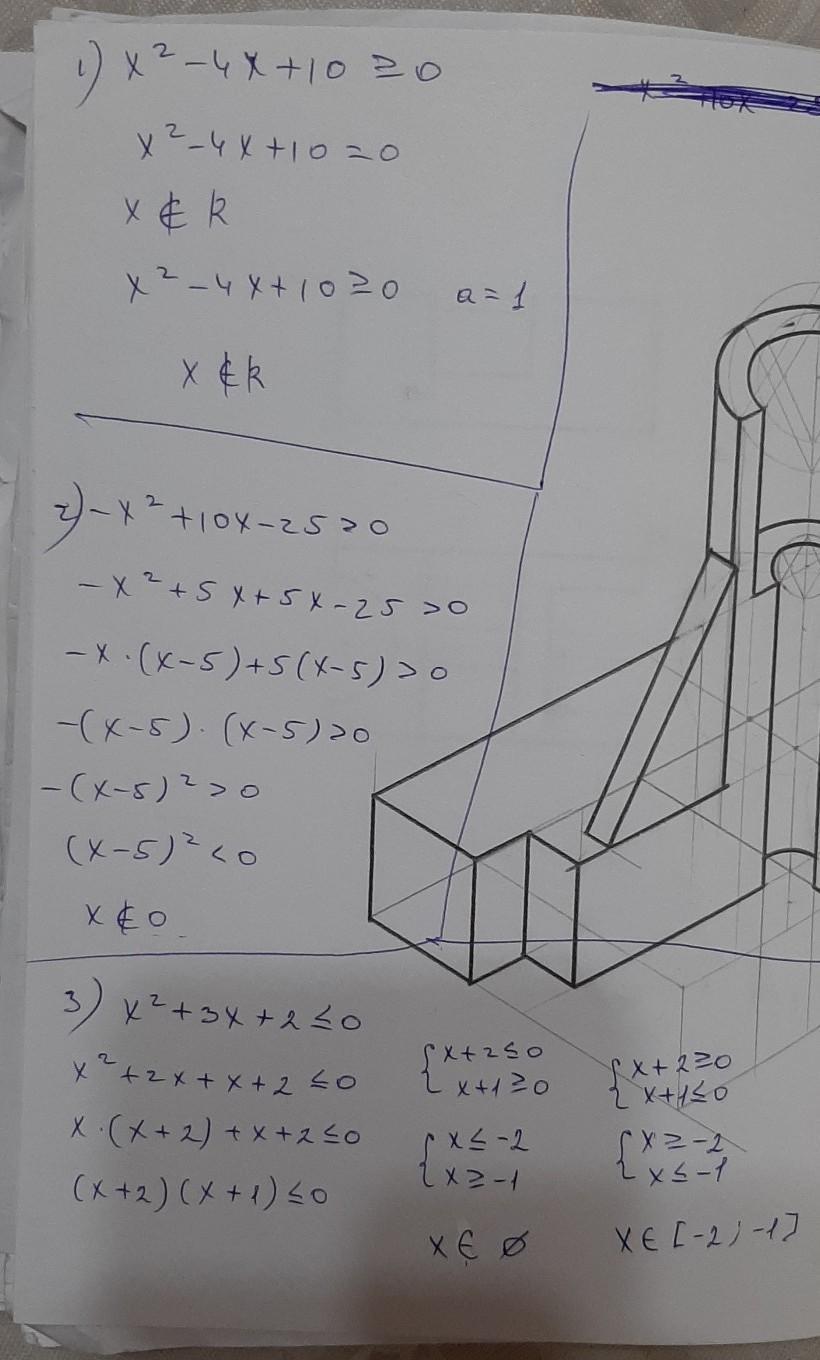 1) x² - 4x + 10 ≥ 0
x² - 4x + 10 = 0
x ∉ R
x² - 4x + 10 ≥ 0 a = 1
x ∉ R
2) -x² + 10x - 25 > 0
-x² + 5x + 5x - 25 > 0
-x · (x - 5) + 5(x - 5) > 0
-(x - 5) · (x - 5) > 0
-(x - 5)² > 0
(x - 5)² < 0
x ∉ 0
3) x² + 3x + 2 ≤ 0
x² + 2x + x + 2 ≤ 0
x · (x + 2) + x + 2 ≤ 0
(x + 2)(x + 1) ≤ 0
{ x + 2 ≤ 0
x + 1 ≥ 0
{ x ≤ -2
x ≥ -1
x ∈ ∅
{ x + 2 ≥ 0
x + 1 ≤ 0
{ x ≥ -2
x ≤ -1
x ∈ [-2; -1]